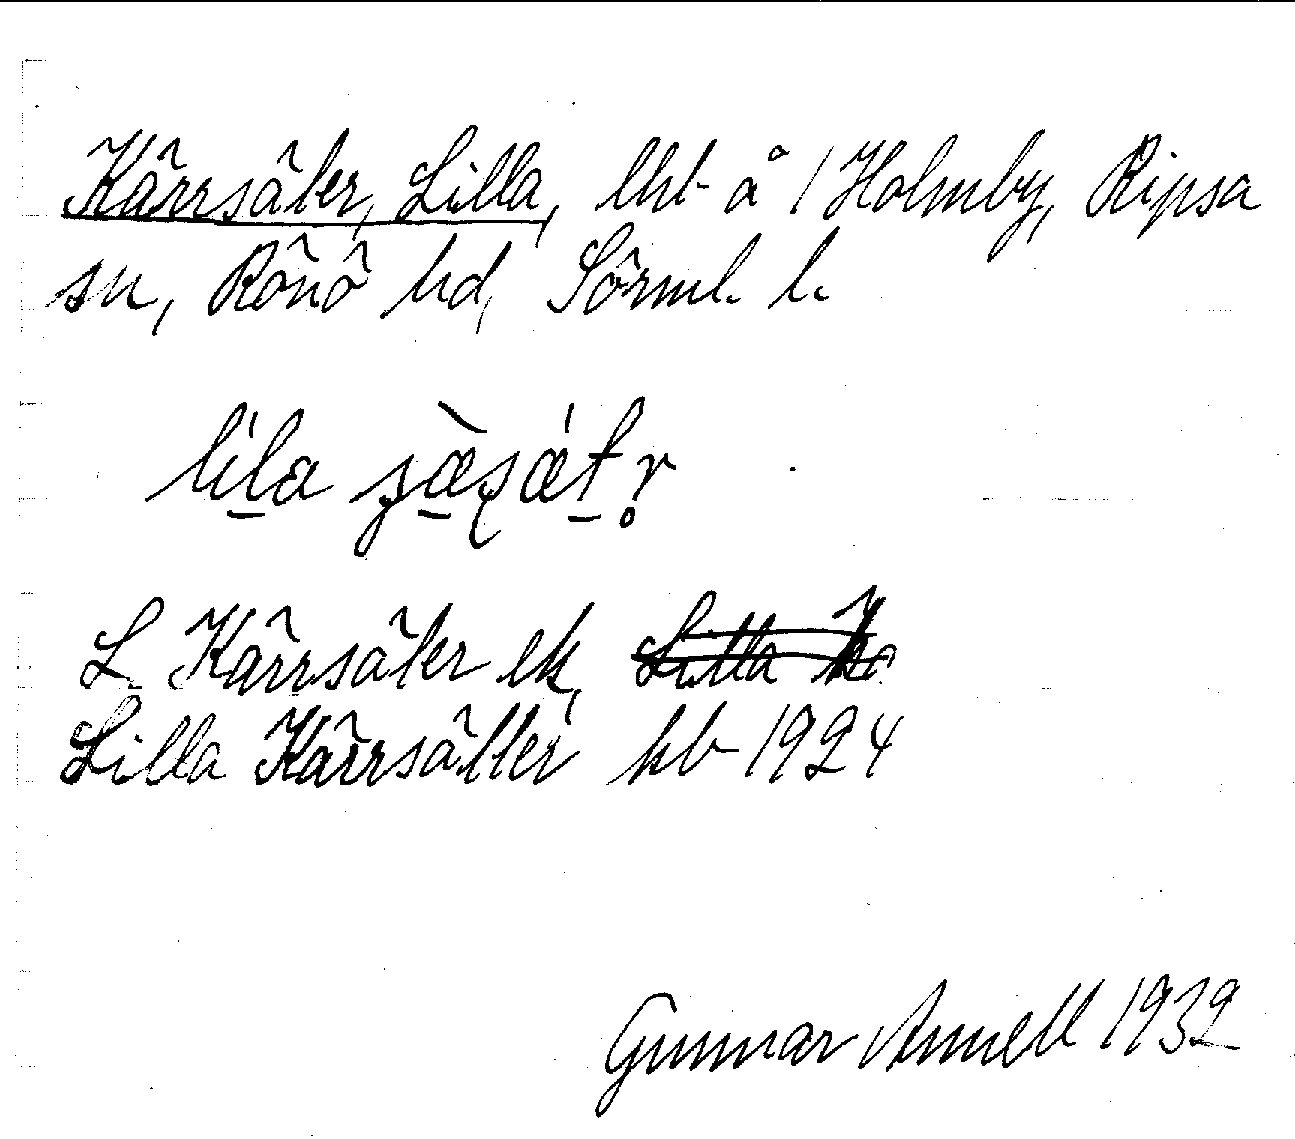 Kärrsäter, Lilla, lht å 1 Holmby, Ripsa
sn, Rönö hd, Sörml. l.
L Kärrsäter ek,
Lilla Kärrsätter kb 1924
Gunnar Annell 1932